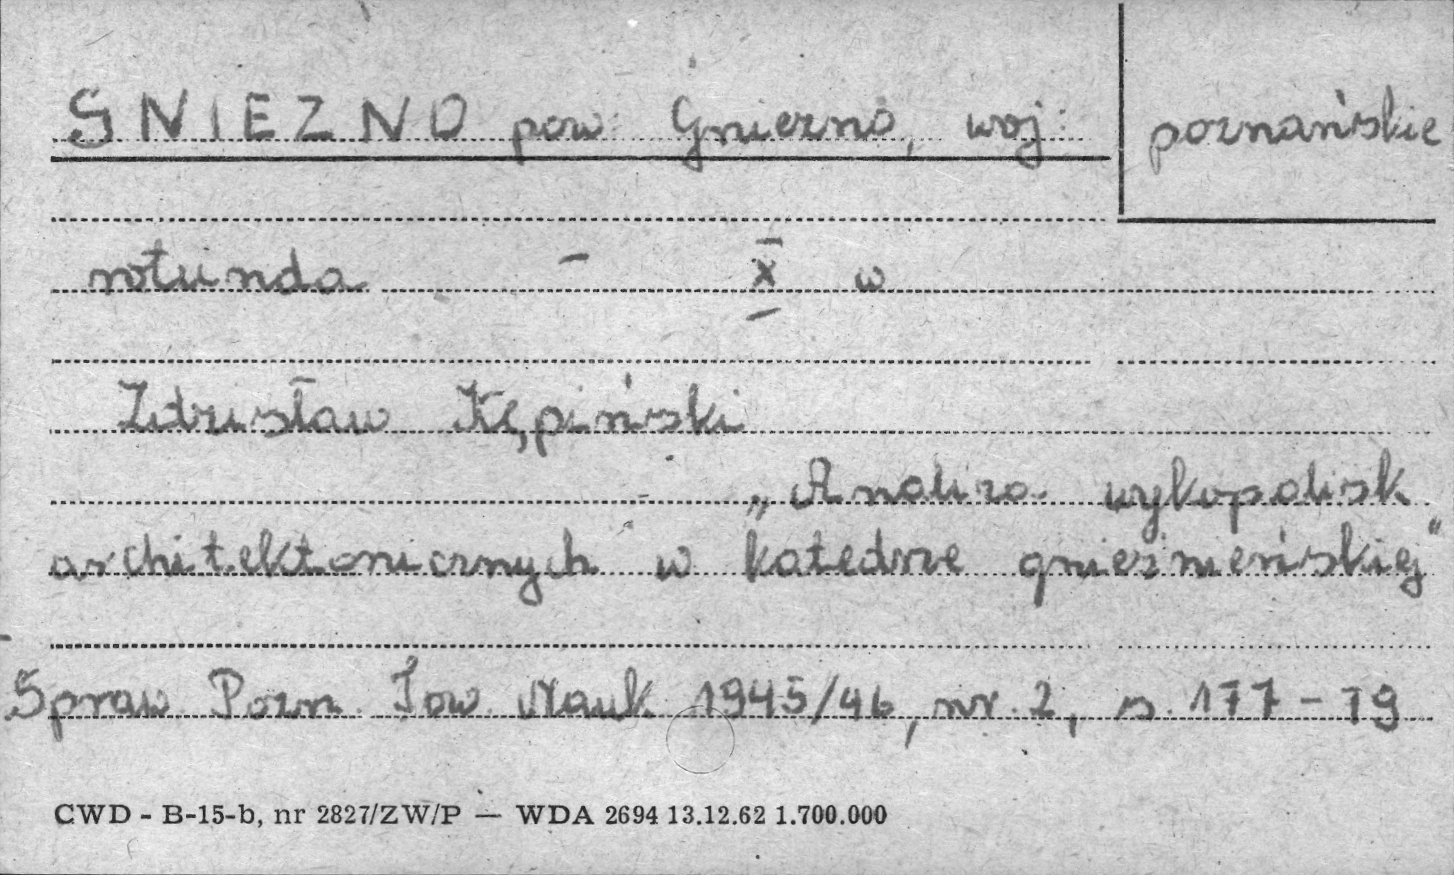 GNIEZNO pow. Gniezno, woj. poznańskie
rotunda - X w
Zdzisław Kępiński
„Analiza wykopalisk
architektonicznych w katedrze gnieźnieńskiej"
Spraw. Pozn. Tow. Nauk 1945/46, nr. 2, s. 177-79
CWD - B-15-b, nr 2827/ZW/P — WDA 2694 13.12.62 1.700.000